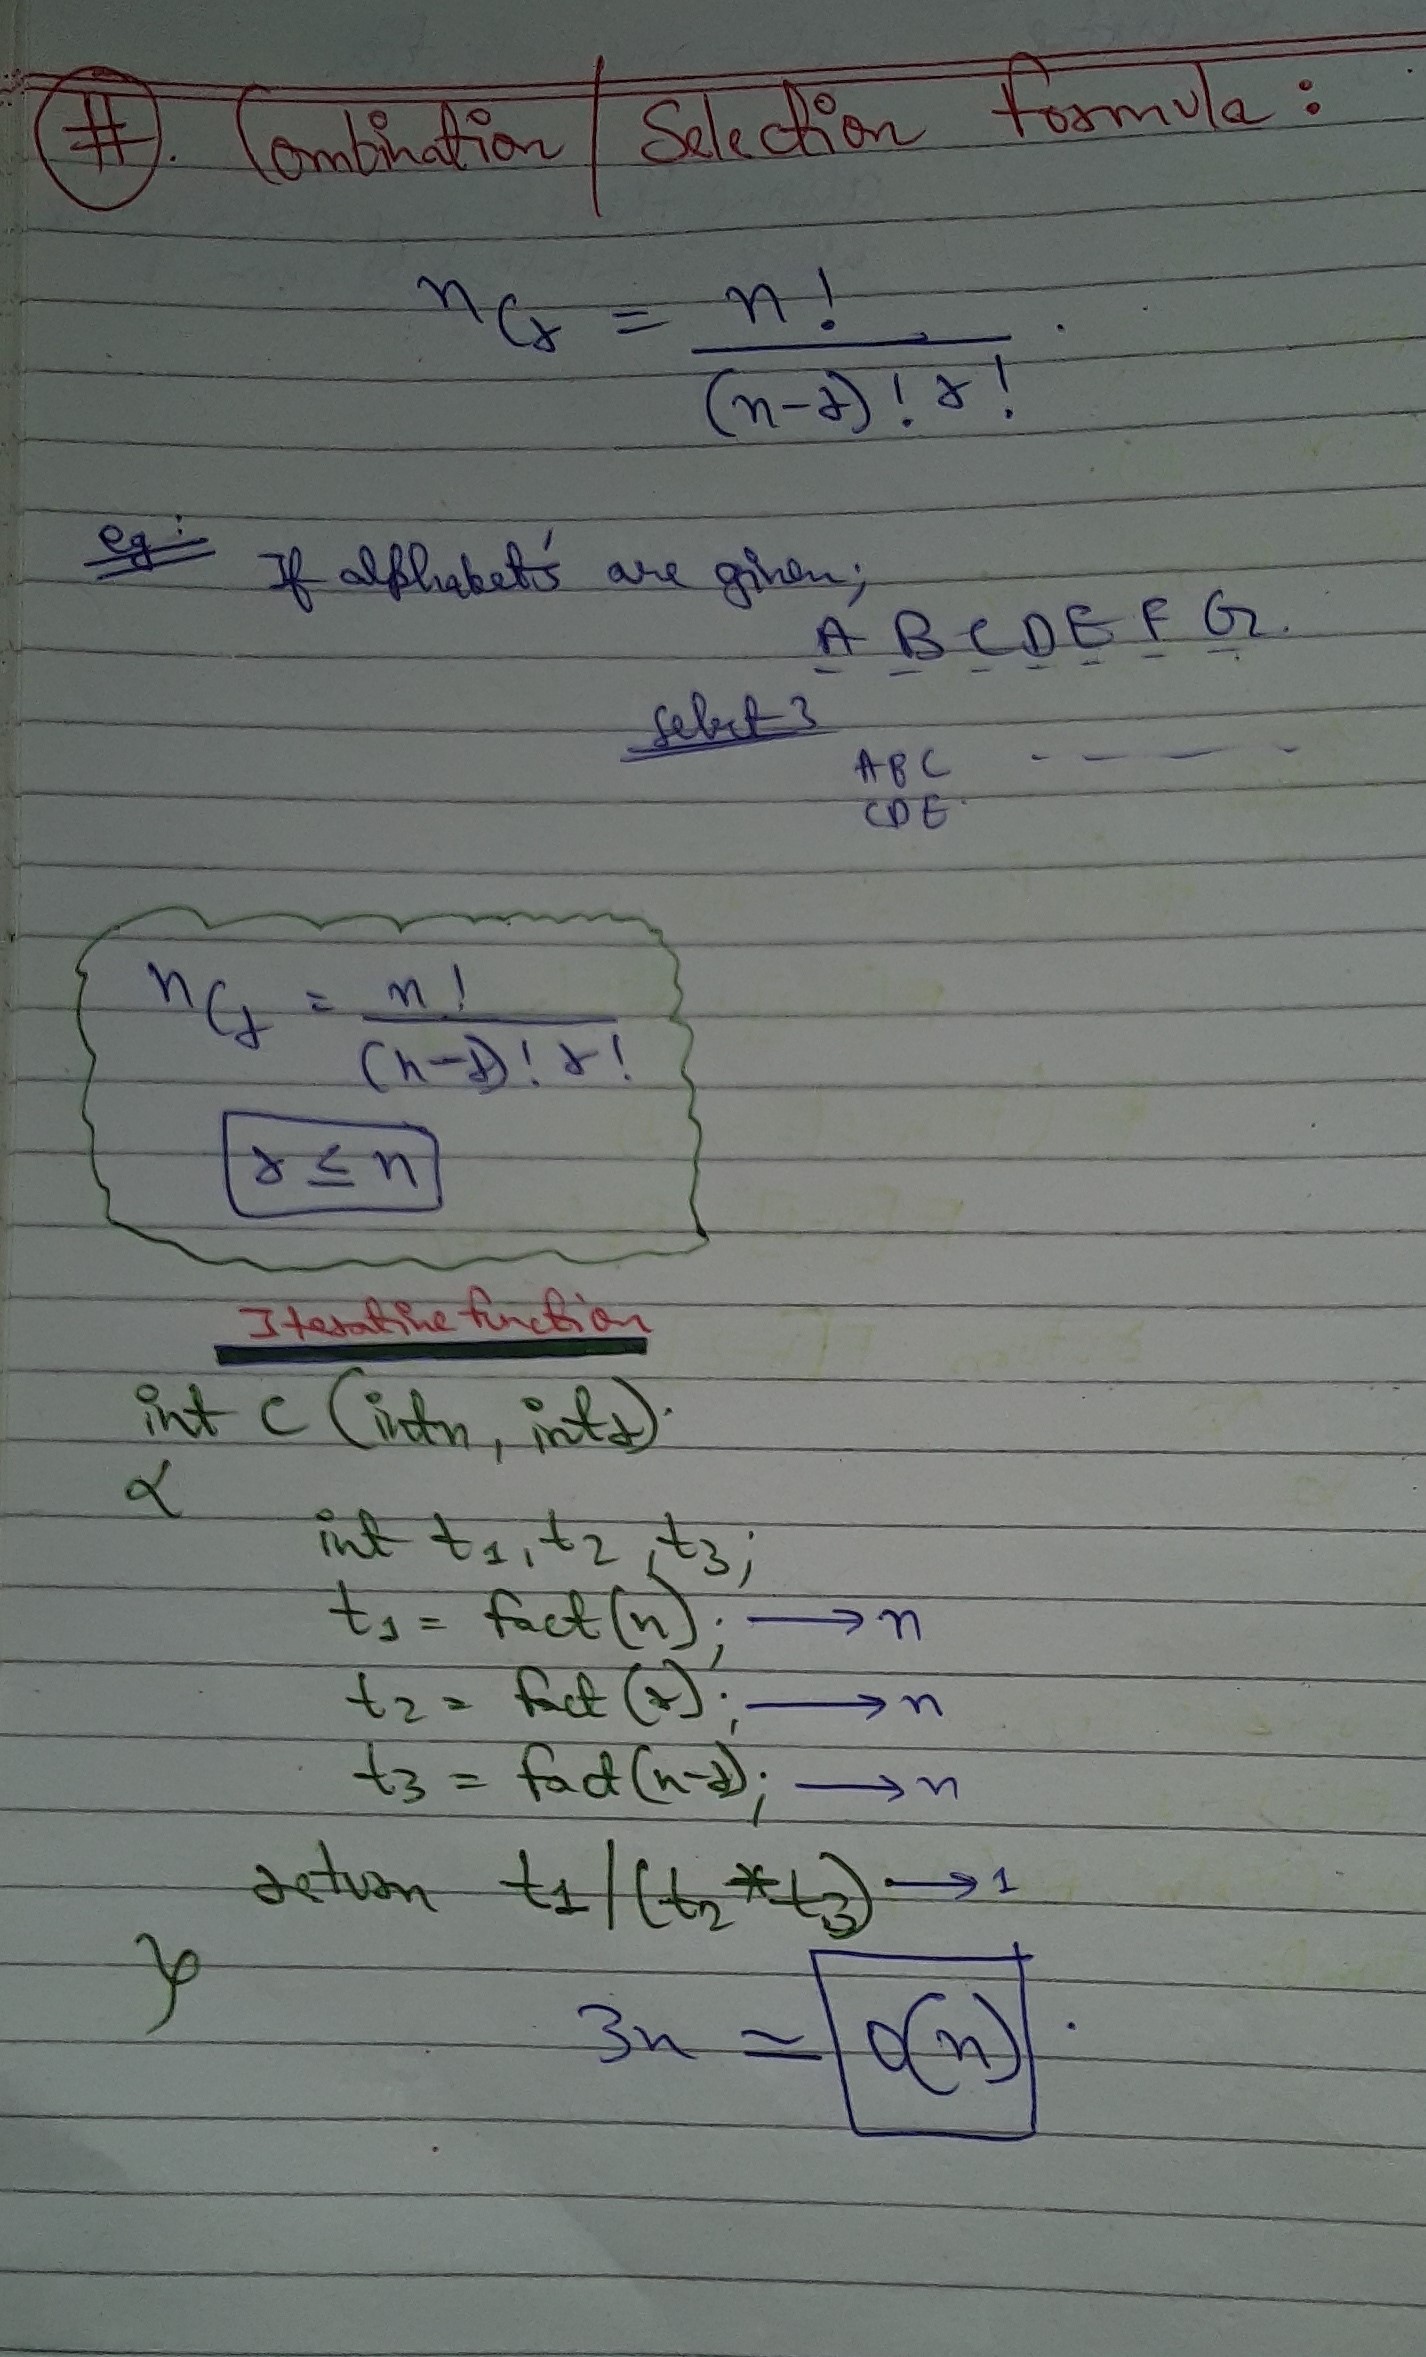 #. Combination / Selection formula :
nCr = n! / (n-r)! r! .
eg:- If alphabet's are given;
A B C D E F G.
select 3
ABC - - - -
CDE
nCr = n! / (n-r)! r!
r ≤ n
Iterative function
int C (int n, int r)
{
int t1, t2, t3;
t1 = fact(n); → n
t2 = fact(r); → n
t3 = fact(n-r); → n
return t1/(t2*t3) → 1
}
3n = O(n) .